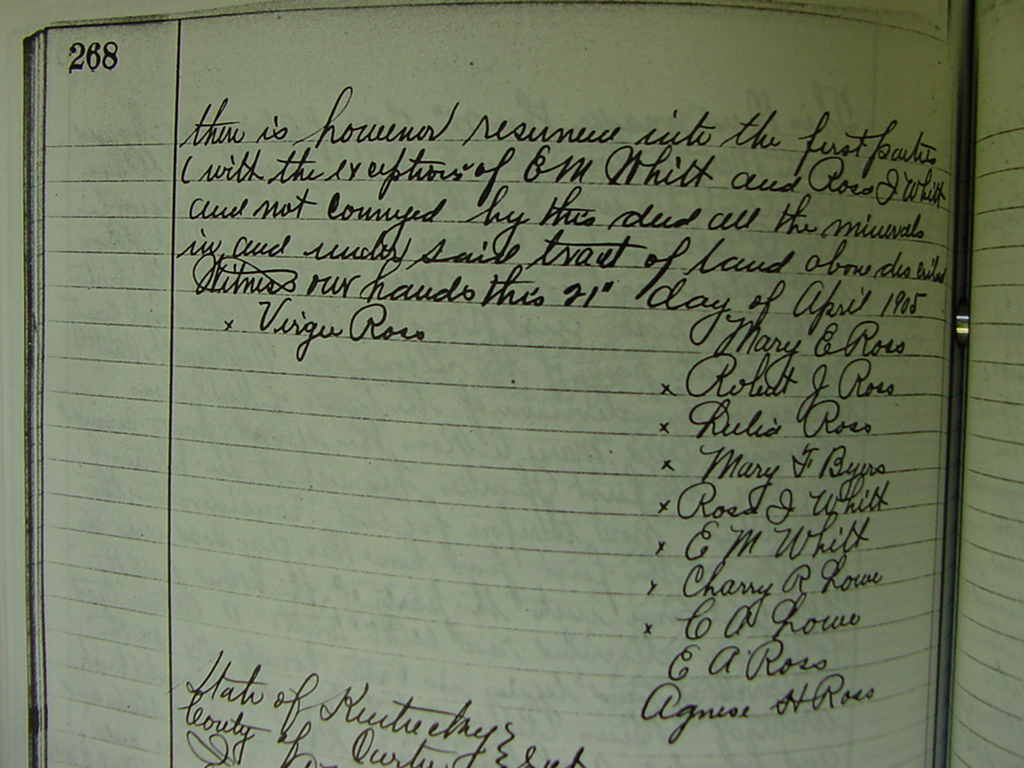 268
there is however reserved unto the first parties
(with the exceptions of E M Whitt and Ross I Whitt
and not conveyed by this deed all the minerals
in and under said tract of land above described
Witness our hands this 21" day of April 1905
x Virgie Ross
Mary E Ross
x Robert J Ross
x Lulia Ross
x Mary F Byers
x Ross I Whitt
x E M Whitt
x Charry R Lowe
x C A Lowe
E A Ross
Agnese H Ross
State of Kentucky }
County of Carter } Sct